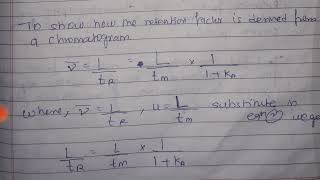 To show how the retention factor is derived from
a chromatogram
v̄ = L/tR = L/tM × 1/1+kA
where, v̄ = L/tR , u = L/tM substitute in eqn (2) we ge
L/tR = L/tM × 1/1+kA